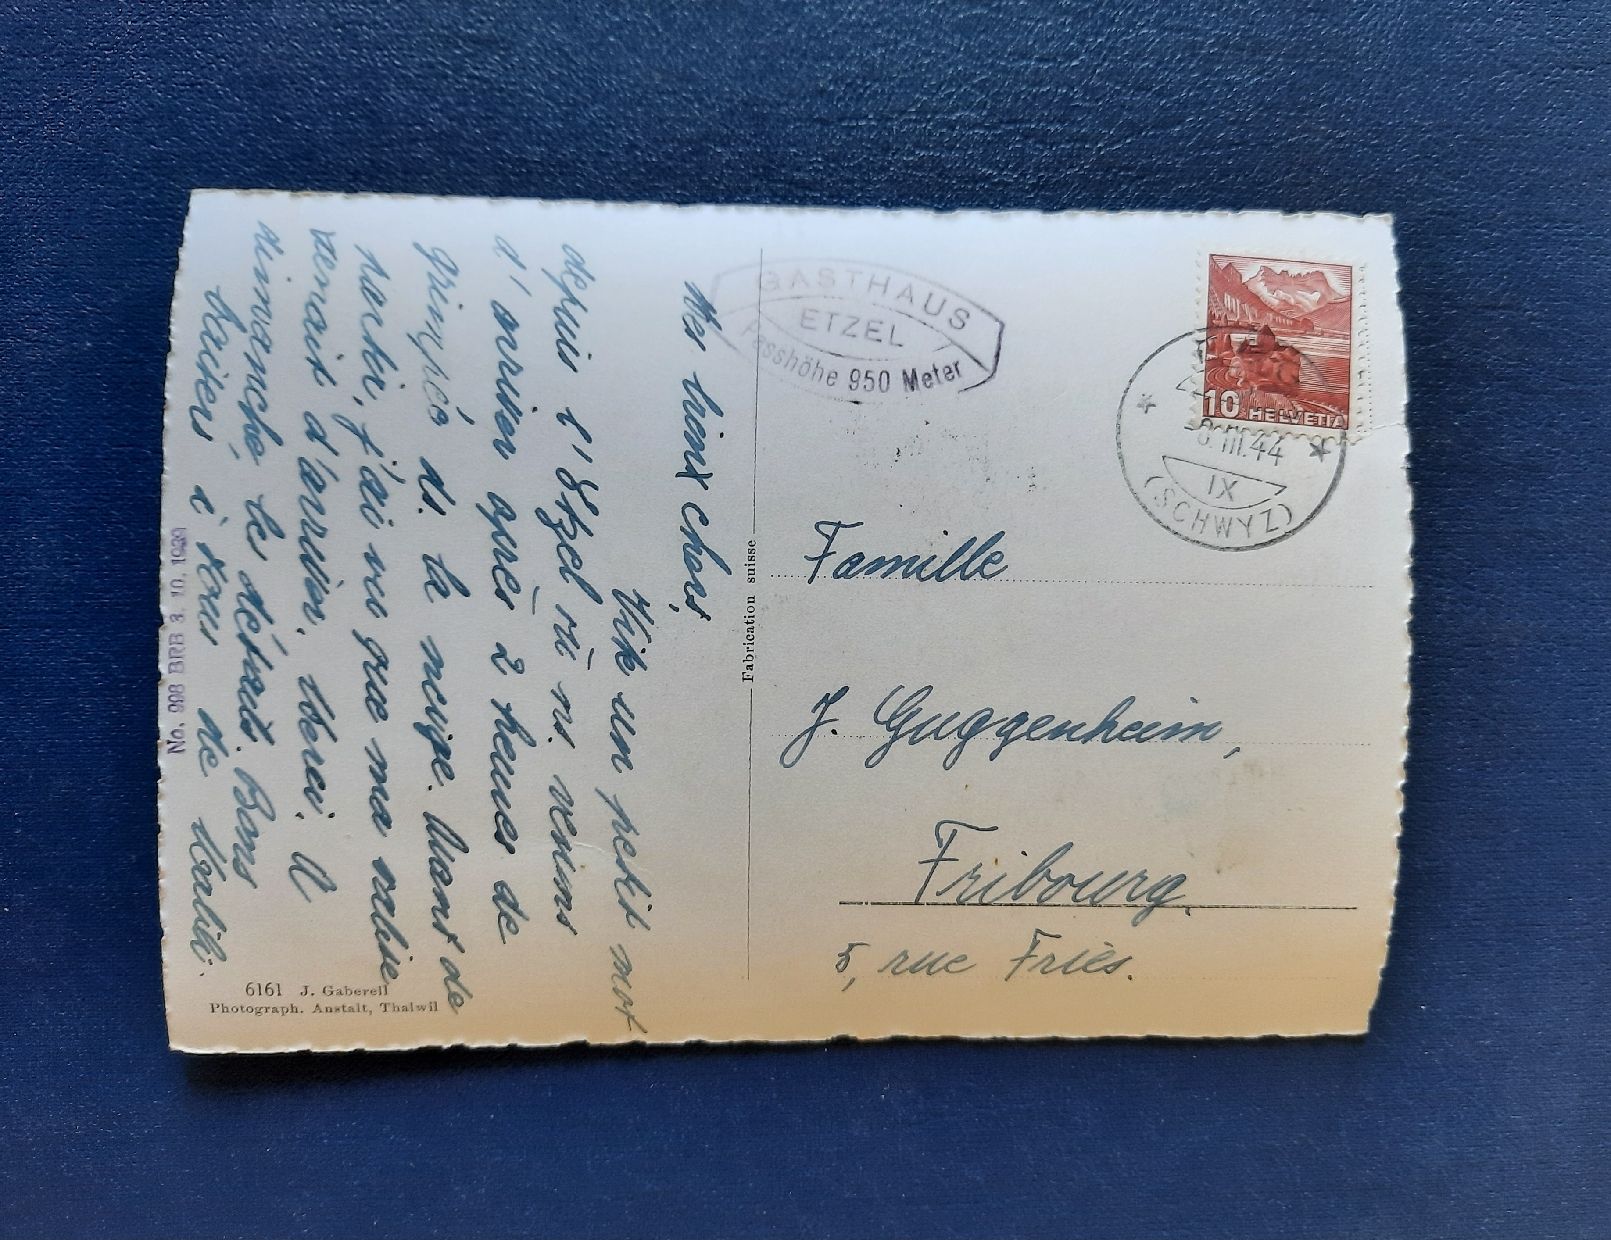 Mes bien chers,
Vite un petit mot
depuis l'Etzel où ns. venons
d'arriver après 2 heures de
grimpée ds. la neige. Avant de
partir, j'ai vu que ma valise
venait d'arriver. Merci. A
dimanche les détails. Bons
baisers à vous de
No. 998 BRB 3. 10. 1939
6161 J. Gaberell
Photograph. Anstalt, Thalwil
Fabrication suisse
GASTHAUS
ETZEL
Passhöhe 950 Meter
10 HELVETIA
III.44
IX
(SCHWYZ)
Famille
J. Guggenheim,
Fribourg.
5, rue Fries.